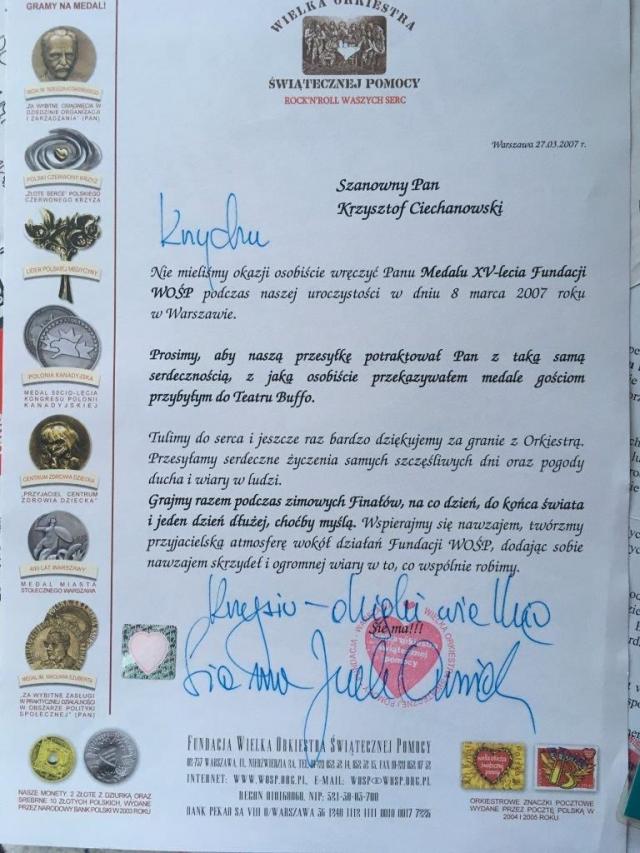 GRAMY NA MEDAL!
WIELKA ORKIESTRA
ŚWIĄTECZNEJ POMOCY
ROCK'N'ROLL WASZYCH SERC
Warszawa 27.03.2007 r.
Szanowny Pan
Krzysztof Ciechanowski
Nie mieliśmy okazji osobiście wręczyć Panu Medalu XV-lecia Fundacji
WOŚP podczas naszej uroczystości w dniu 8 marca 2007 roku
w Warszawie.
Prosimy, aby naszą przesyłkę potraktował Pan z taką samą
serdecznością, z jaką osobiście przekazywałem medale gościom
przybyłym do Teatru Buffo.
Tulimy do serca i jeszcze raz bardzo dziękujemy za granie z Orkiestrą.
Przesyłamy serdeczne życzenia samych szczęśliwych dni oraz pogody
ducha i wiary w ludzi.
Grajmy razem podczas zimowych Finałów, na co dzień, do końca świata
i jeden dzień dłużej, choćby myślą. Wspierajmy się nawzajem, twórzmy
przyjacielską atmosferę wokół działań Fundacji WOŚP, dodając sobie
nawzajem skrzydeł i ogromnej wiary w to, co wspólnie robimy.
Krzysiu - dzięki wielkie
Sie ma!!!
Sie ma
"ZA WYBITNE OSIĄGNIĘCIA W
DZIEDZINIE ORGANIZACJI
I ZARZĄDZANIA" (PAN)
POLSKI CZERWONY KRZYŻ
"ZŁOTE SERCE" POLSKIEGO
CZERWONEGO KRZYŻA
LIDER POLSKIEJ MEDYCYNY
POLONIA KANADYJSKA
MEDAL 50-LECIA
KONGRESU POLONII
KANADYJSKIEJ
CENTRUM ZDROWIA DZIECKA
"PRZYJACIEL CENTRUM
ZDROWIA DZIECKA"
400 LAT WARSZAWY
MEDAL MIASTA
STOŁECZNEGO WARSZAWA
MEDAL IM. WACŁAWA SZUBERTA
"ZA WYBITNE ZASŁUGI
W PRAKTYCZNEJ DZIAŁALNOŚCI
W OBSZARZE POLITYKI
SPOŁECZNEJ" (PAN)
NASZE MONETY: 2 ZŁOTE Z DZIURKĄ ORAZ
SREBRNE 10 ZŁOTYCH POLSKICH, WYDANE
PRZEZ NARODOWY BANK POLSKI W 2003 ROKU
FUNDACJA WIELKA ORKIESTRA ŚWIĄTECZNEJ POMOCY
02-757 WARSZAWA, UL. NIEDŹWIEDZIA 2A,
INTERNET: WWW.WOSP.ORG.PL, E-MAIL: WOSP@WOSP.ORG.PL
REGON 010168068, NIP: 521-30-03-700
BANK PEKAO SA VIII O/WARSZAWA
ORKIESTROWE ZNACZKI POCZTOWE
WYDANE PRZEZ POCZTĘ POLSKĄ W
2004 I 2005 ROKU